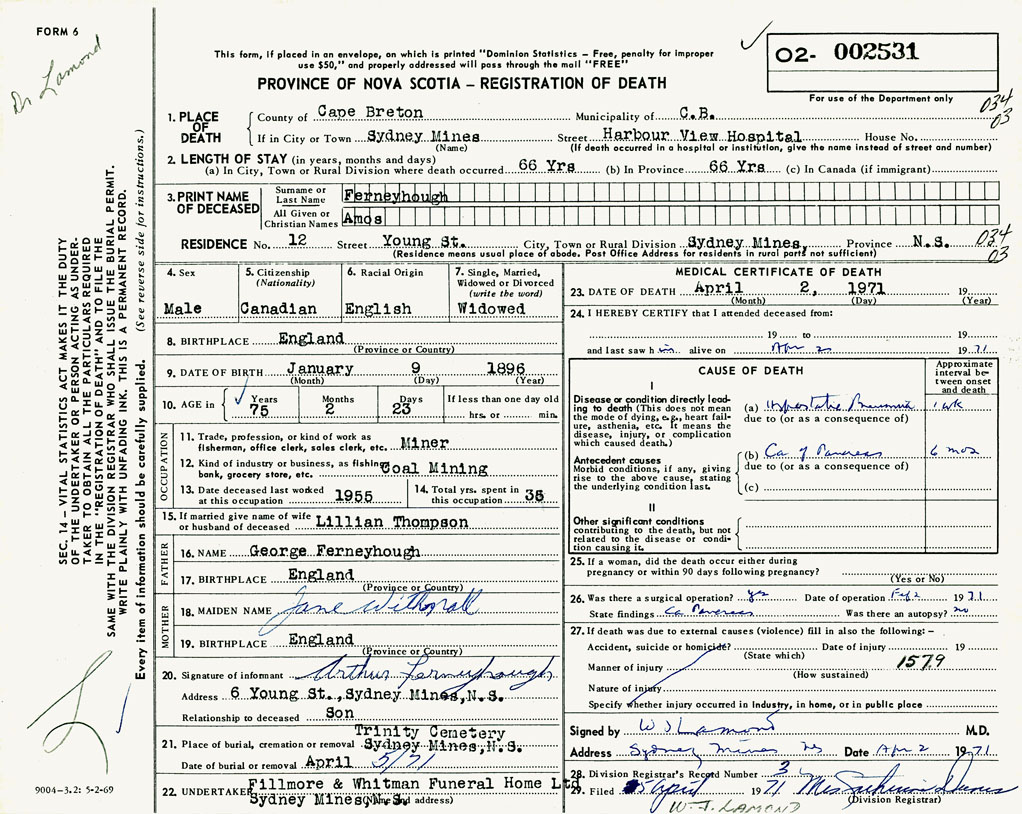 FORM 6
Dr Lamond
This form, if placed in an envelope, on which is printed "Dominion Statistics – Free, penalty for improper
use $50," and properly addressed will pass through the mail "FREE"
PROVINCE OF NOVA SCOTIA – REGISTRATION OF DEATH
02- 002531
For use of the Department only
034
03
1. PLACE OF DEATH
County of Cape Breton Municipality of C.B.
If in City or Town Sydney Mines Street Harbour View Hospital House No.
(Name) (If death occurred in a hospital or institution, give the name instead of street and number)
2. LENGTH OF STAY (in years, months and days)
(a) In City, Town or Rural Division where death occurred 66 Yrs (b) In Province 66 Yrs (c) In Canada (if immigrant)
3. PRINT NAME OF DECEASED
Surname or Last Name Ferneyhough
All Given or Christian Names Amos
RESIDENCE No. 12 Street Young St. City, Town or Rural Division Sydney Mines, Province N.S.
(Residence means usual place of abode. Post Office Address for residents in rural parts not sufficient)
034
03
4. Sex
Male
5. Citizenship
(Nationality)
Canadian
6. Racial Origin
English
7. Single, Married,
Widowed or Divorced
(write the word)
Widowed
8. BIRTHPLACE England
(Province or Country)
9. DATE OF BIRTH January 9 1896
(Month) (Day) (Year)
10. AGE in Years 75 Months 2 Days 23 If less than one day old
hrs. or min.
OCCUPATION
11. Trade, profession, or kind of work as
fisherman, office clerk, sales clerk, etc. Miner
12. Kind of industry or business, as fishing
bank, grocery store, etc. Coal Mining
13. Date deceased last worked
at this occupation 1955
14. Total yrs. spent in
this occupation
15. If married give name of wife
or husband of deceased Lillian Thompson
FATHER
16. NAME George Ferneyhough
17. BIRTHPLACE England
(Province or Country)
MOTHER
18. MAIDEN NAME Jane
19. BIRTHPLACE England
(Province or Country)
20. Signature of informant Arthur Ferneyhough
Address 6 Young St., Sydney Mines, N.S.
Relationship to deceased Son
21. Place of burial, cremation or removal Trinity Cemetery
Sydney Mines, N.S.
Date of burial or removal April 5/71
22. UNDERTAKER Fillmore & Whitman Funeral Home Ltd.
Sydney Mines, N.S. (Name and address)
MEDICAL CERTIFICATE OF DEATH
23. DATE OF DEATH April 2, 1971 19
(Month) (Day) (Year)
24. I HEREBY CERTIFY that I attended deceased from:
19 to 19
and last saw h im alive on Apr 2 1971
CAUSE OF DEATH
Approximate
interval be-
tween onset
and death
I
Disease or condition directly lead-
ing to death (This does not mean
the mode of dying, e.g., heart fail-
ure, asthenia, etc. It means the
disease, injury, or complication
which caused death.)
(a) Hypostatic Pneumonia 1 wk
due to (or as a consequence of)
Antecedent causes
Morbid conditions, if any, giving
rise to the above cause, stating
the underlying condition last.
(b) Ca of Pancreas 6 mos
due to (or as a consequence of)
(c)
II
Other significant conditions
contributing to the death, but not
related to the disease or condi-
tion causing it.
25. If a woman, did the death occur either during
pregnancy or within 90 days following pregnancy?
(Yes or No)
26. Was there a surgical operation? yes Date of operation Feb 1971
State findings Ca Pancreas Was there an autopsy? no
27. If death was due to external causes (violence) fill in also the following: –
Accident, suicide or homicide? Date of injury 19
(State which)
Manner of injury 1579
(How sustained)
Nature of injury
Specify whether injury occurred in industry, in home, or in public place
Signed by W J Lamond M.D.
Address Sydney Mines NS Date Apr 2 1971
28. Division Registrar's Record Number
29. Filed 5 April 1971 Mrs
(Division Registrar)
W. J. LAMOND
SEC. 14 – VITAL STATISTICS ACT MAKES IT THE DUTY
OF THE UNDERTAKER OR PERSON ACTING AS UNDER-
TAKER TO OBTAIN ALL THE PARTICULARS REQUIRED
IN THE "REGISTRATION OF DEATH" AND TO FILE THE
SAME WITH THE DIVISION REGISTRAR WHO SHALL ISSUE THE BURIAL PERMIT.
WRITE PLAINLY WITH UNFADING INK. THIS IS A PERMANENT RECORD.
Every item of information should be carefully supplied. (See reverse side for instructions.)
9004-3.2: 5-2-69